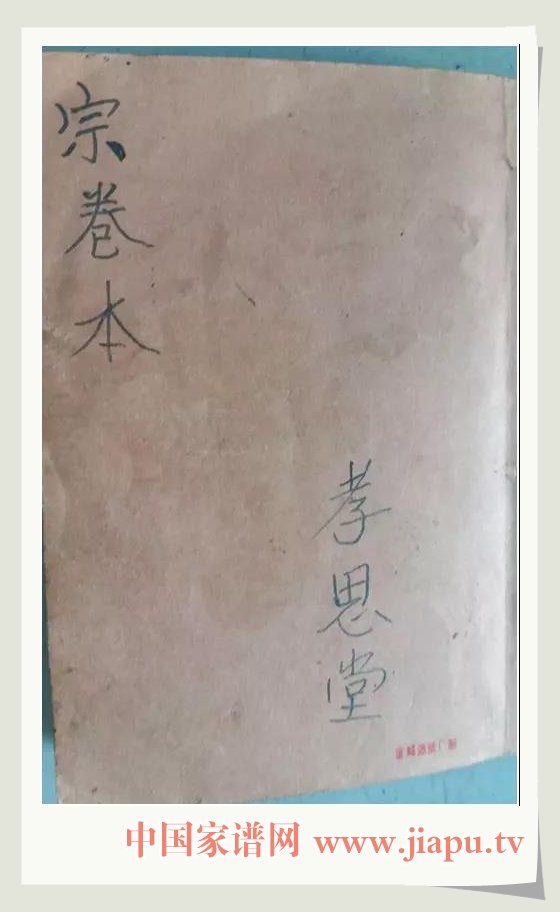 宗卷本
孝思堂
中国家谱网 www.jiapu.tv